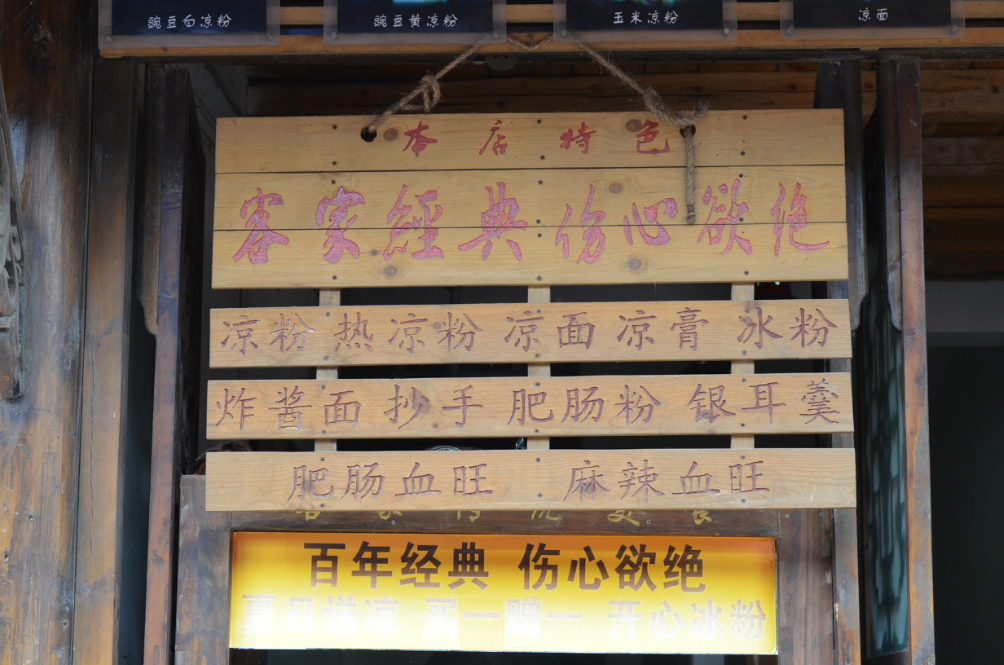 豌豆白凉粉 豌豆黄凉粉 玉米凉粉 凉面
本店特色
客家經典伤心欲绝
凉粉 热凉粉 凉面 凉膏 冰粉
炸酱面 抄手 肥肠粉 银耳羹
肥肠血旺 麻辣血旺
百年经典 伤心欲绝
夏日送凉 买一赠一 开心冰粉